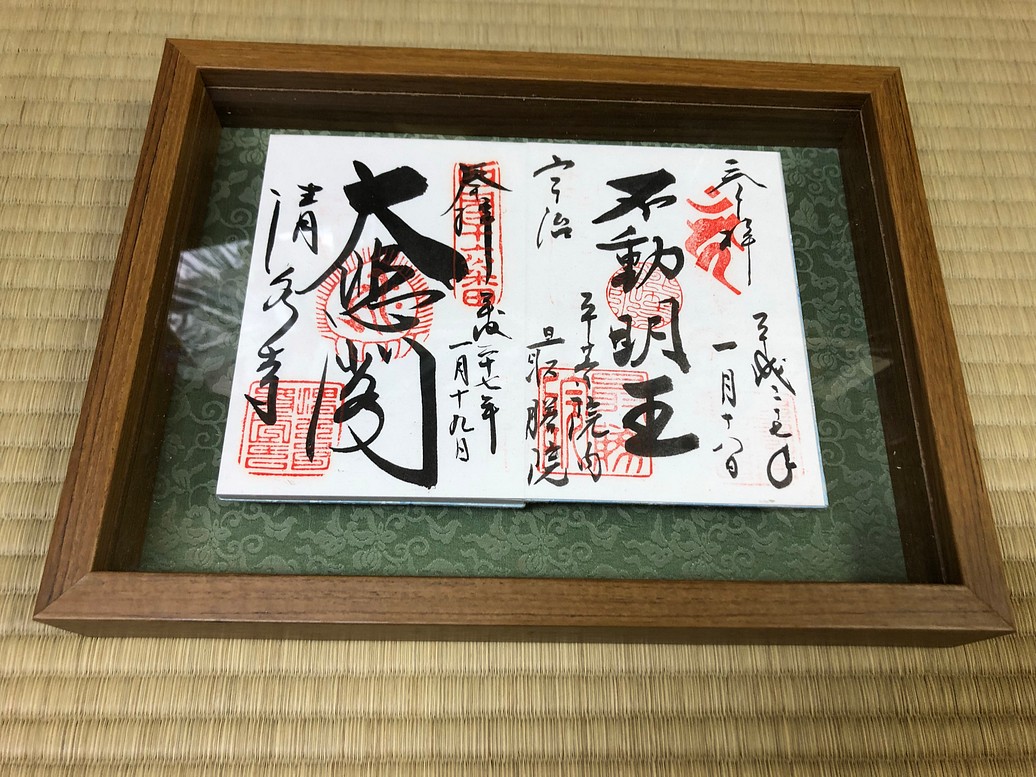 奉拝
平成二七年
一月十八日
不動明王
宇治
平等院内
最勝院
奉拝
平成二十七年
一月十九日
大悲閣
清水寺